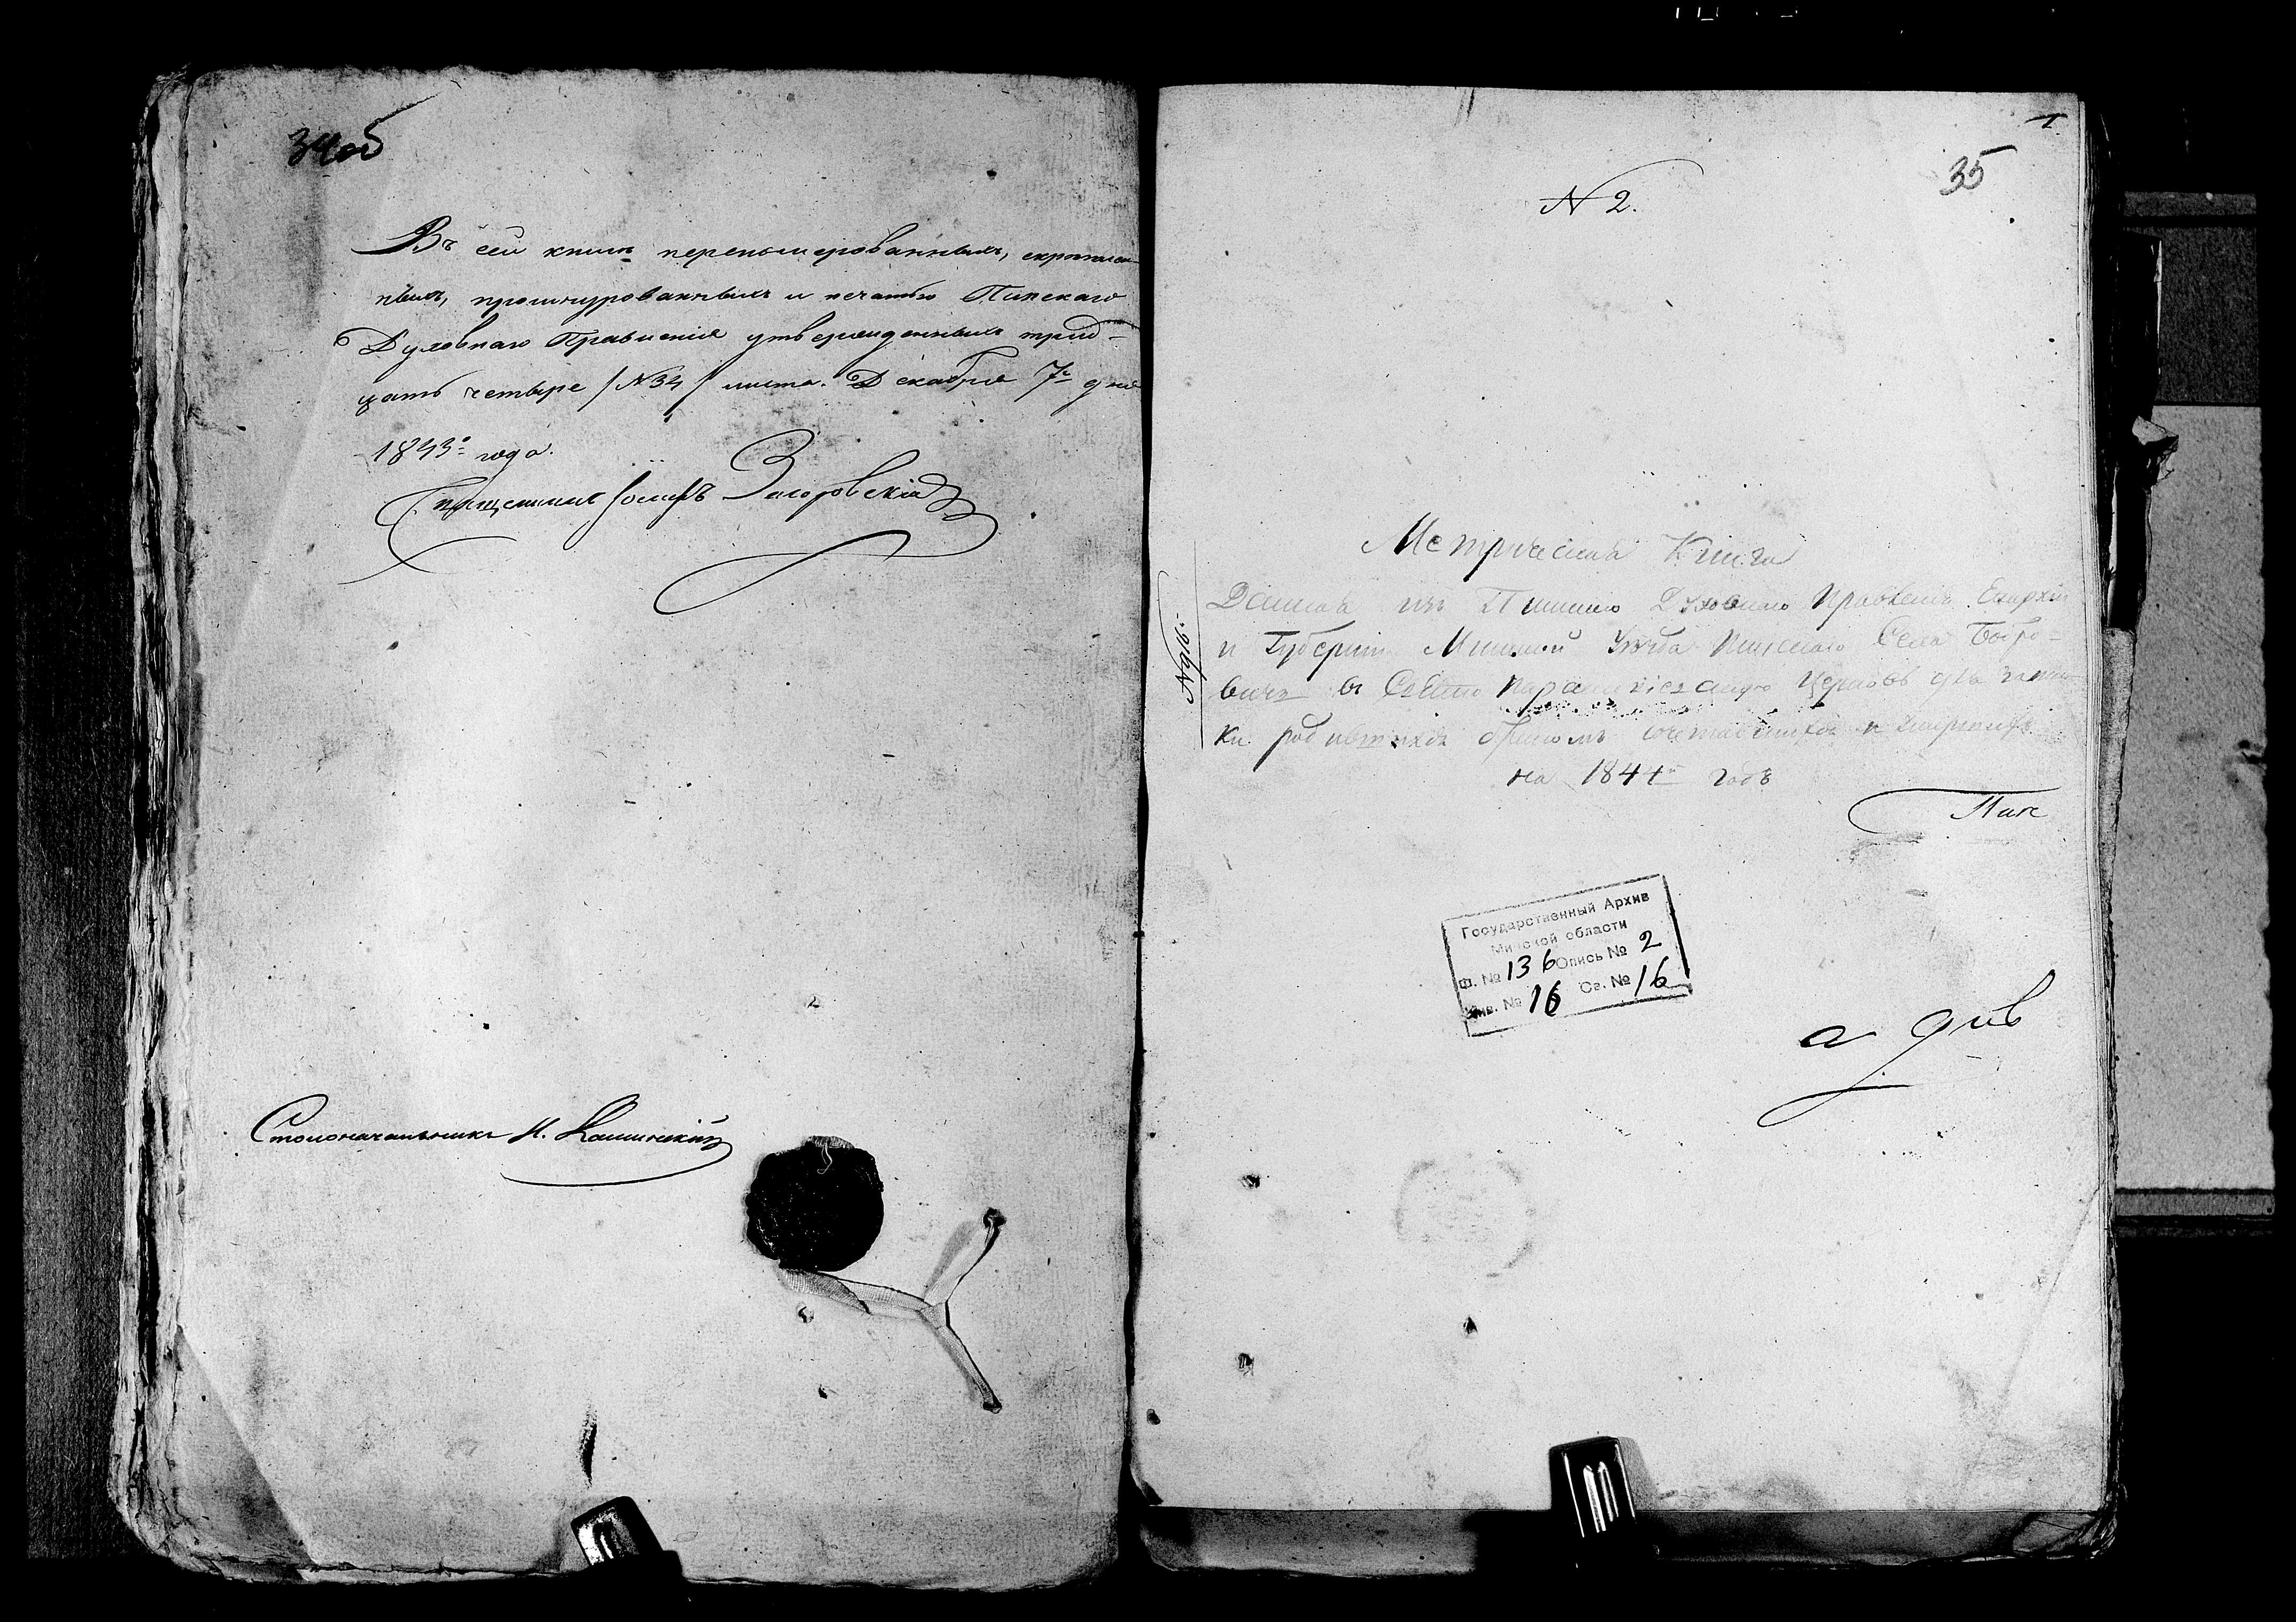 34об
Въ сей книгѣ перенумерованныхъ, скрѣплен-
ныхъ, прошнурованныхъ и печатью Пинскаго
Духовнаго Правленія утвержденныхъ трид-
цать четыре /N34/ листа. Декабря 7го дня
1843го года.
Священникъ Іосифъ Загоровскій
Столоначальникъ
1
35
N 2.
Метрическая Книга
Данная изъ Пинскаго Духовнаго Правленія Епархіи
и Губерніи Минской Уѣзда Пинскаго Села Бобро-
вичь въ Свято Параскевіевскую Церковь для запис-
ки родившихся бракомъ сочетавшихся и умершихъ
на 1844й годъ
N 916.
Пин
а днь
Государственный Архив
Минской области
Ф. № 136 Опись № 2
Инв. № 16 Св. № 16